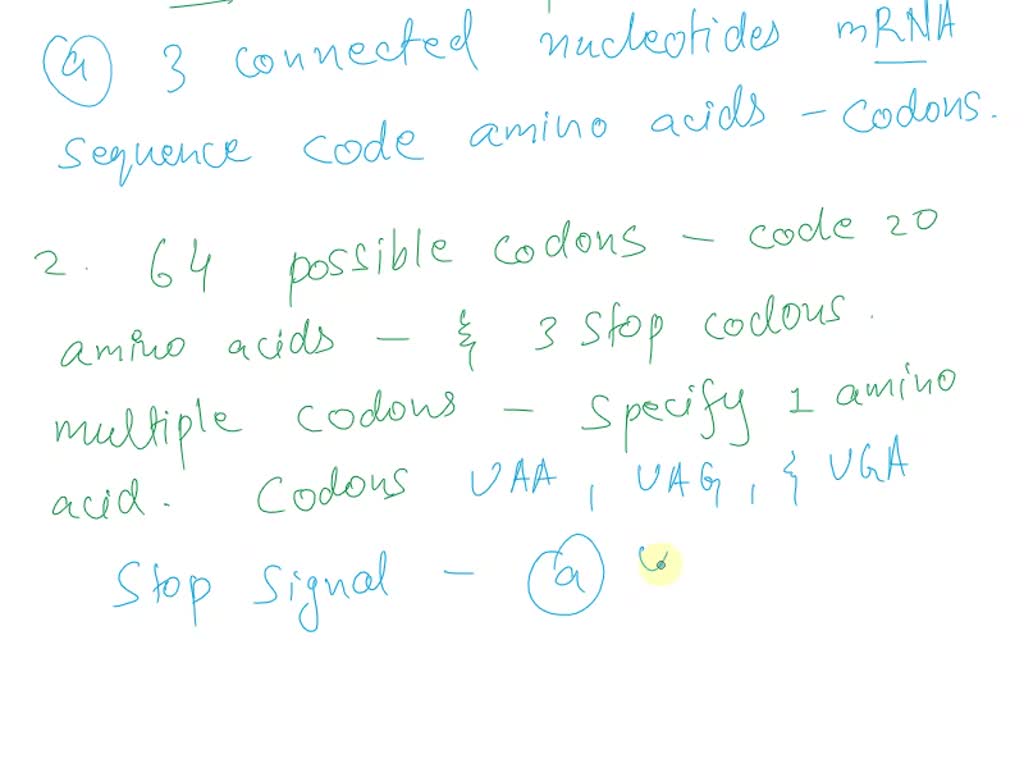 (a) 3 connected nucleotides mRNA
sequence code amino acids - codons.
2. 64 possible codons - code 20
amino acids - & 3 stop codons.
multiple codons - specify 1 amino
acid. Codons UAA, UAG, & UGA
Stop signal - (a)